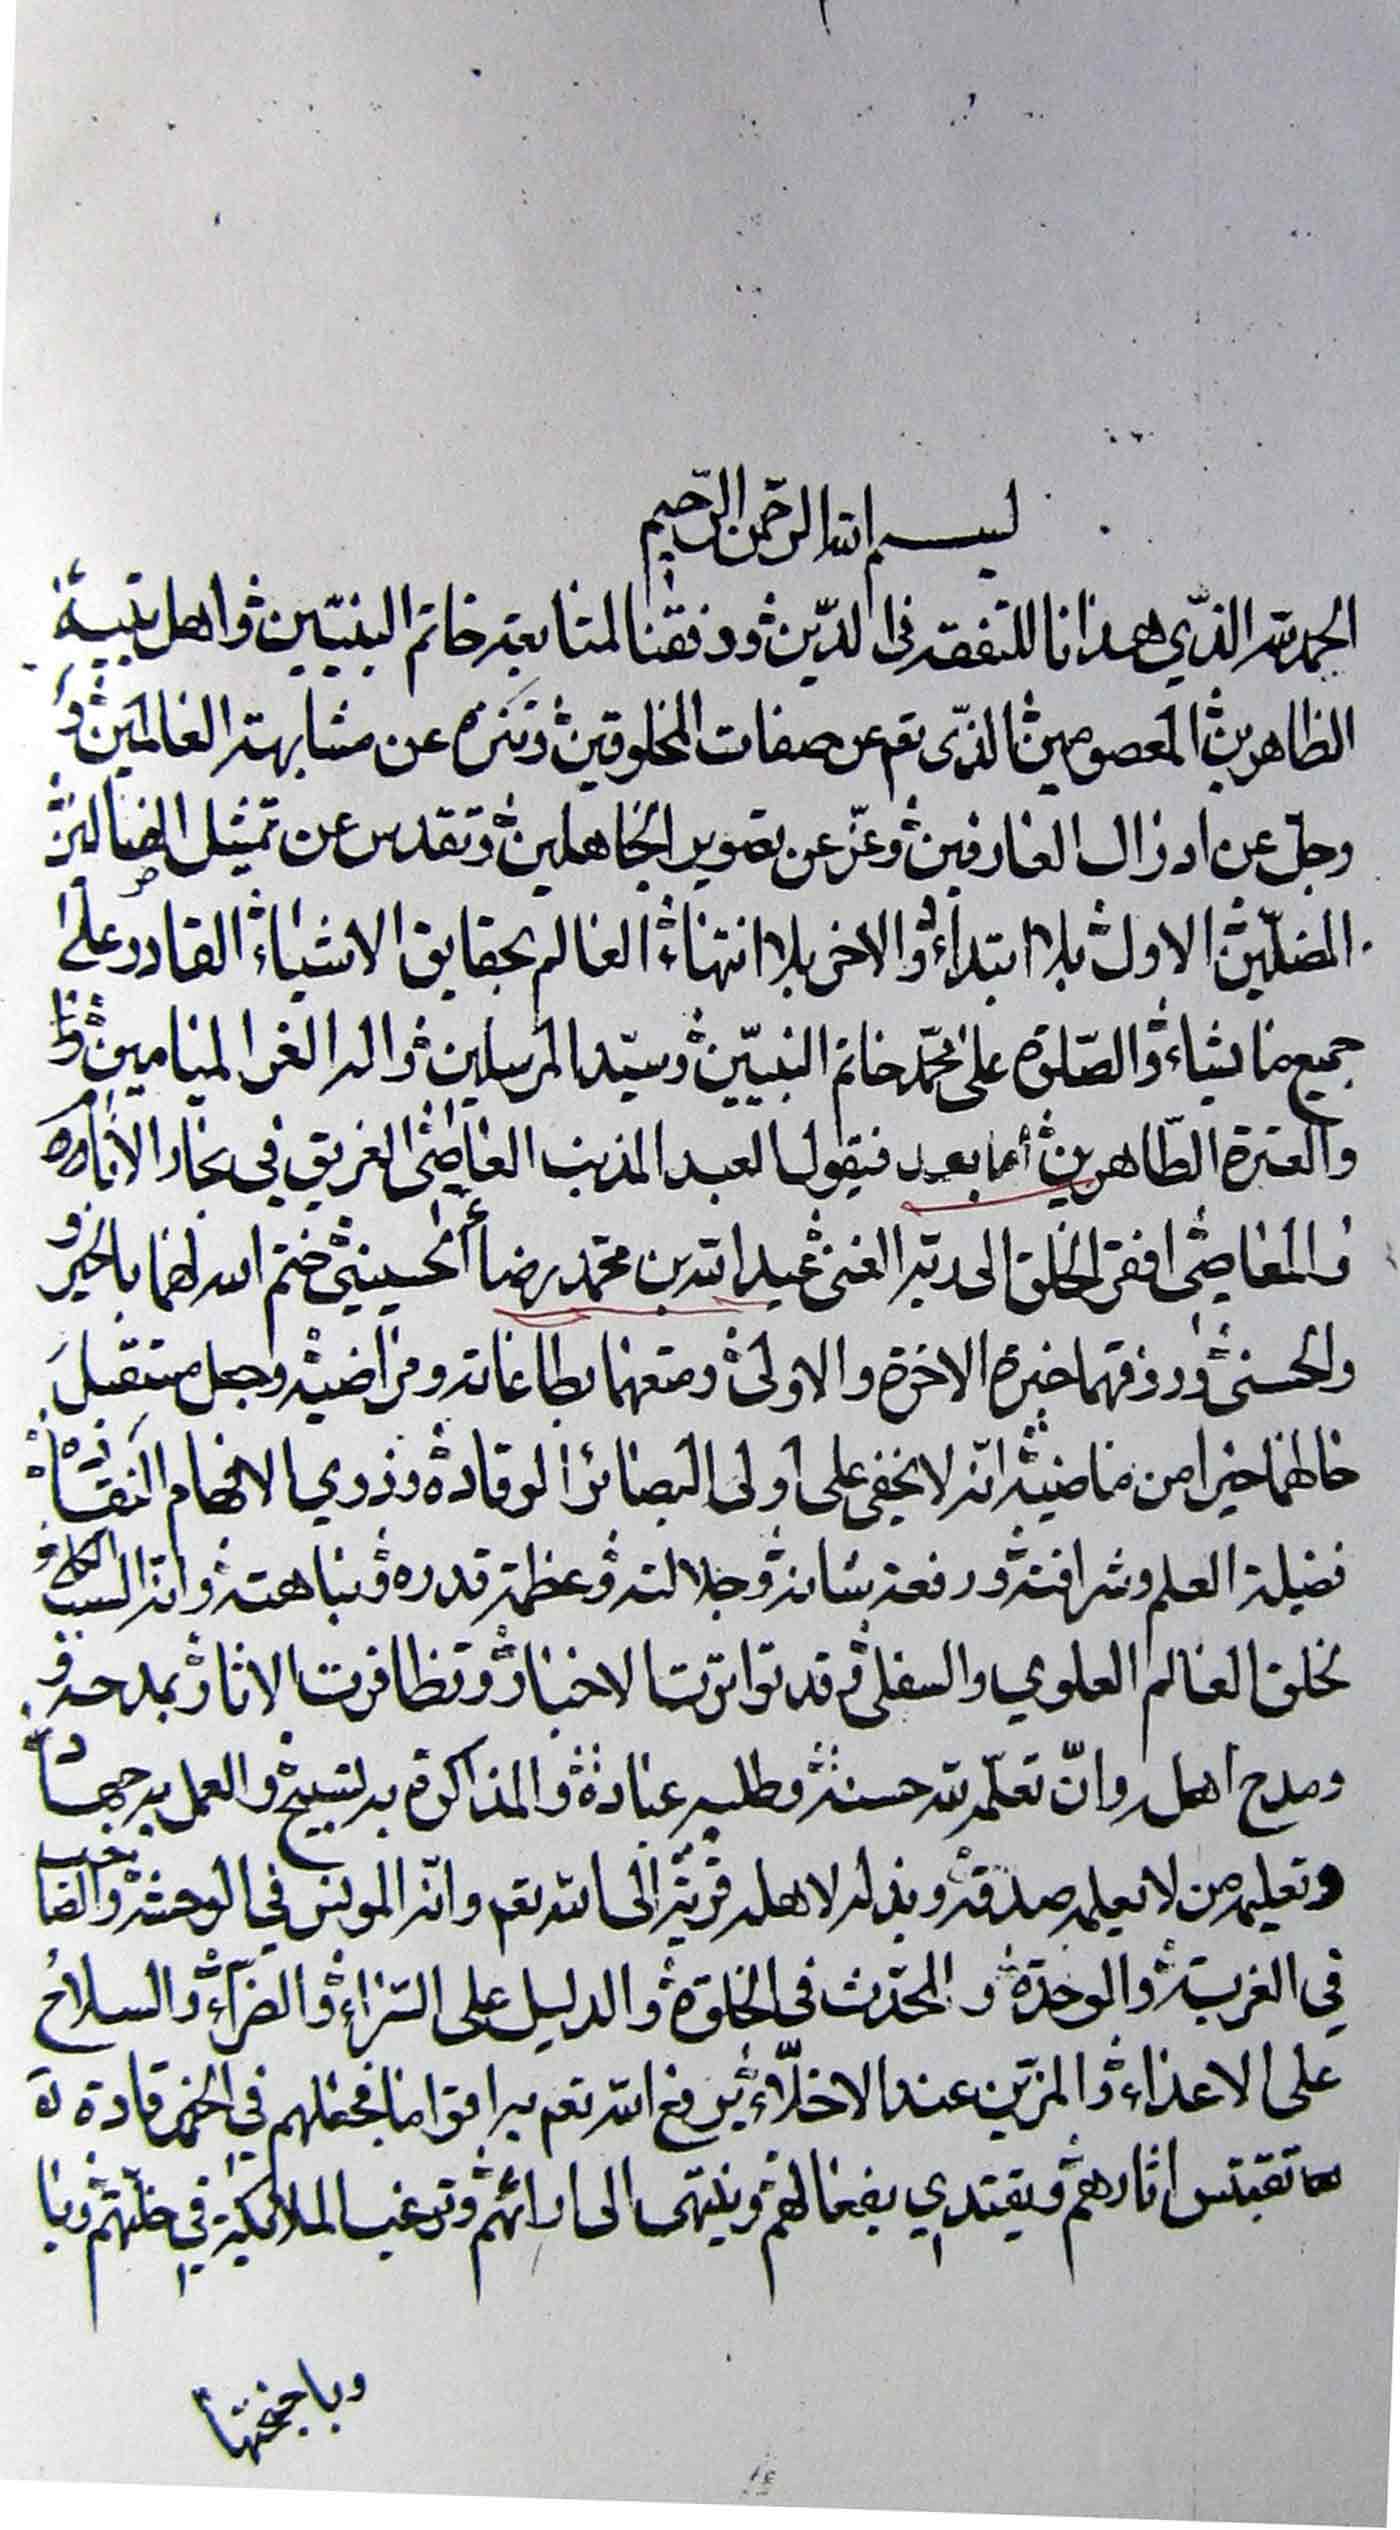 بسم الله الرحمن الرحيم
الحمد لله الذي هدانا للتفقه في الدين ووفقنا لمتابعة خاتم النبيين واهل بيته
الطاهرين المعصومين الذي تعم عن صفات المخلوقين وتنزه عن مشابهة العالمين و
وجل عن ادراك العارفين وعز عن تصوير الجاهلين وتقدس عن تمثيل الضالين
المضلين الاول بلا ابتداء والاخر بلا انتهاء العالم بحقايق الاشياء القادر على
جميع ما يشاء والصلوة على محمد خاتم النبيين وسيد المرسلين واله الغر الميامين و
والعترة الطاهرين أما بعد فيقول العبد المذنب العاصي الغريق في بحار الاثام
والمعاصي افقر الخلق الى ربه الغني عبد الله بن محمد رضا الحسيني ختم الله لهما بالخير و
والحسنى ورزقهما خير الاخرة والاولى ومتعهما بطاعاته ومراضيه وجعل مستقبل
حالهما خيرا من ماضيه انه لا يخفى على اولى البصائر الوقادة وذوي الافهام النقادة
فضيلة العلم وشرافته ورفعة شانه وجلالته وعظمة قدره ونباهته وانه السبب الكلي
لخلق العالم العلوي والسفلي قد تواترت الاخبار وتظافرت الاثار بمدحه و
ومدح اهله وان تعلمه لله حسنة وطلبه عبادة والمذاكرة به تسبيح والعمل به جهاد
وتعليمه من لا يعلمه صدقة وبذله لاهله قربة الى الله تعم وانه المونس في الوحشة والصاحب
في الغربة والوحدة والمحدث في الخلوة والدليل على السراء والضراء والسلاح
على الاعداء والمزين عند الاخلاء يرفع الله تعم به اقواما فجعلهم في الخير قادة
تقتبس اثارهم ويقتدي بفعالهم وينتهى الى ارائهم وترغب الملائكة في خلتهم وبا
وباجنحتها